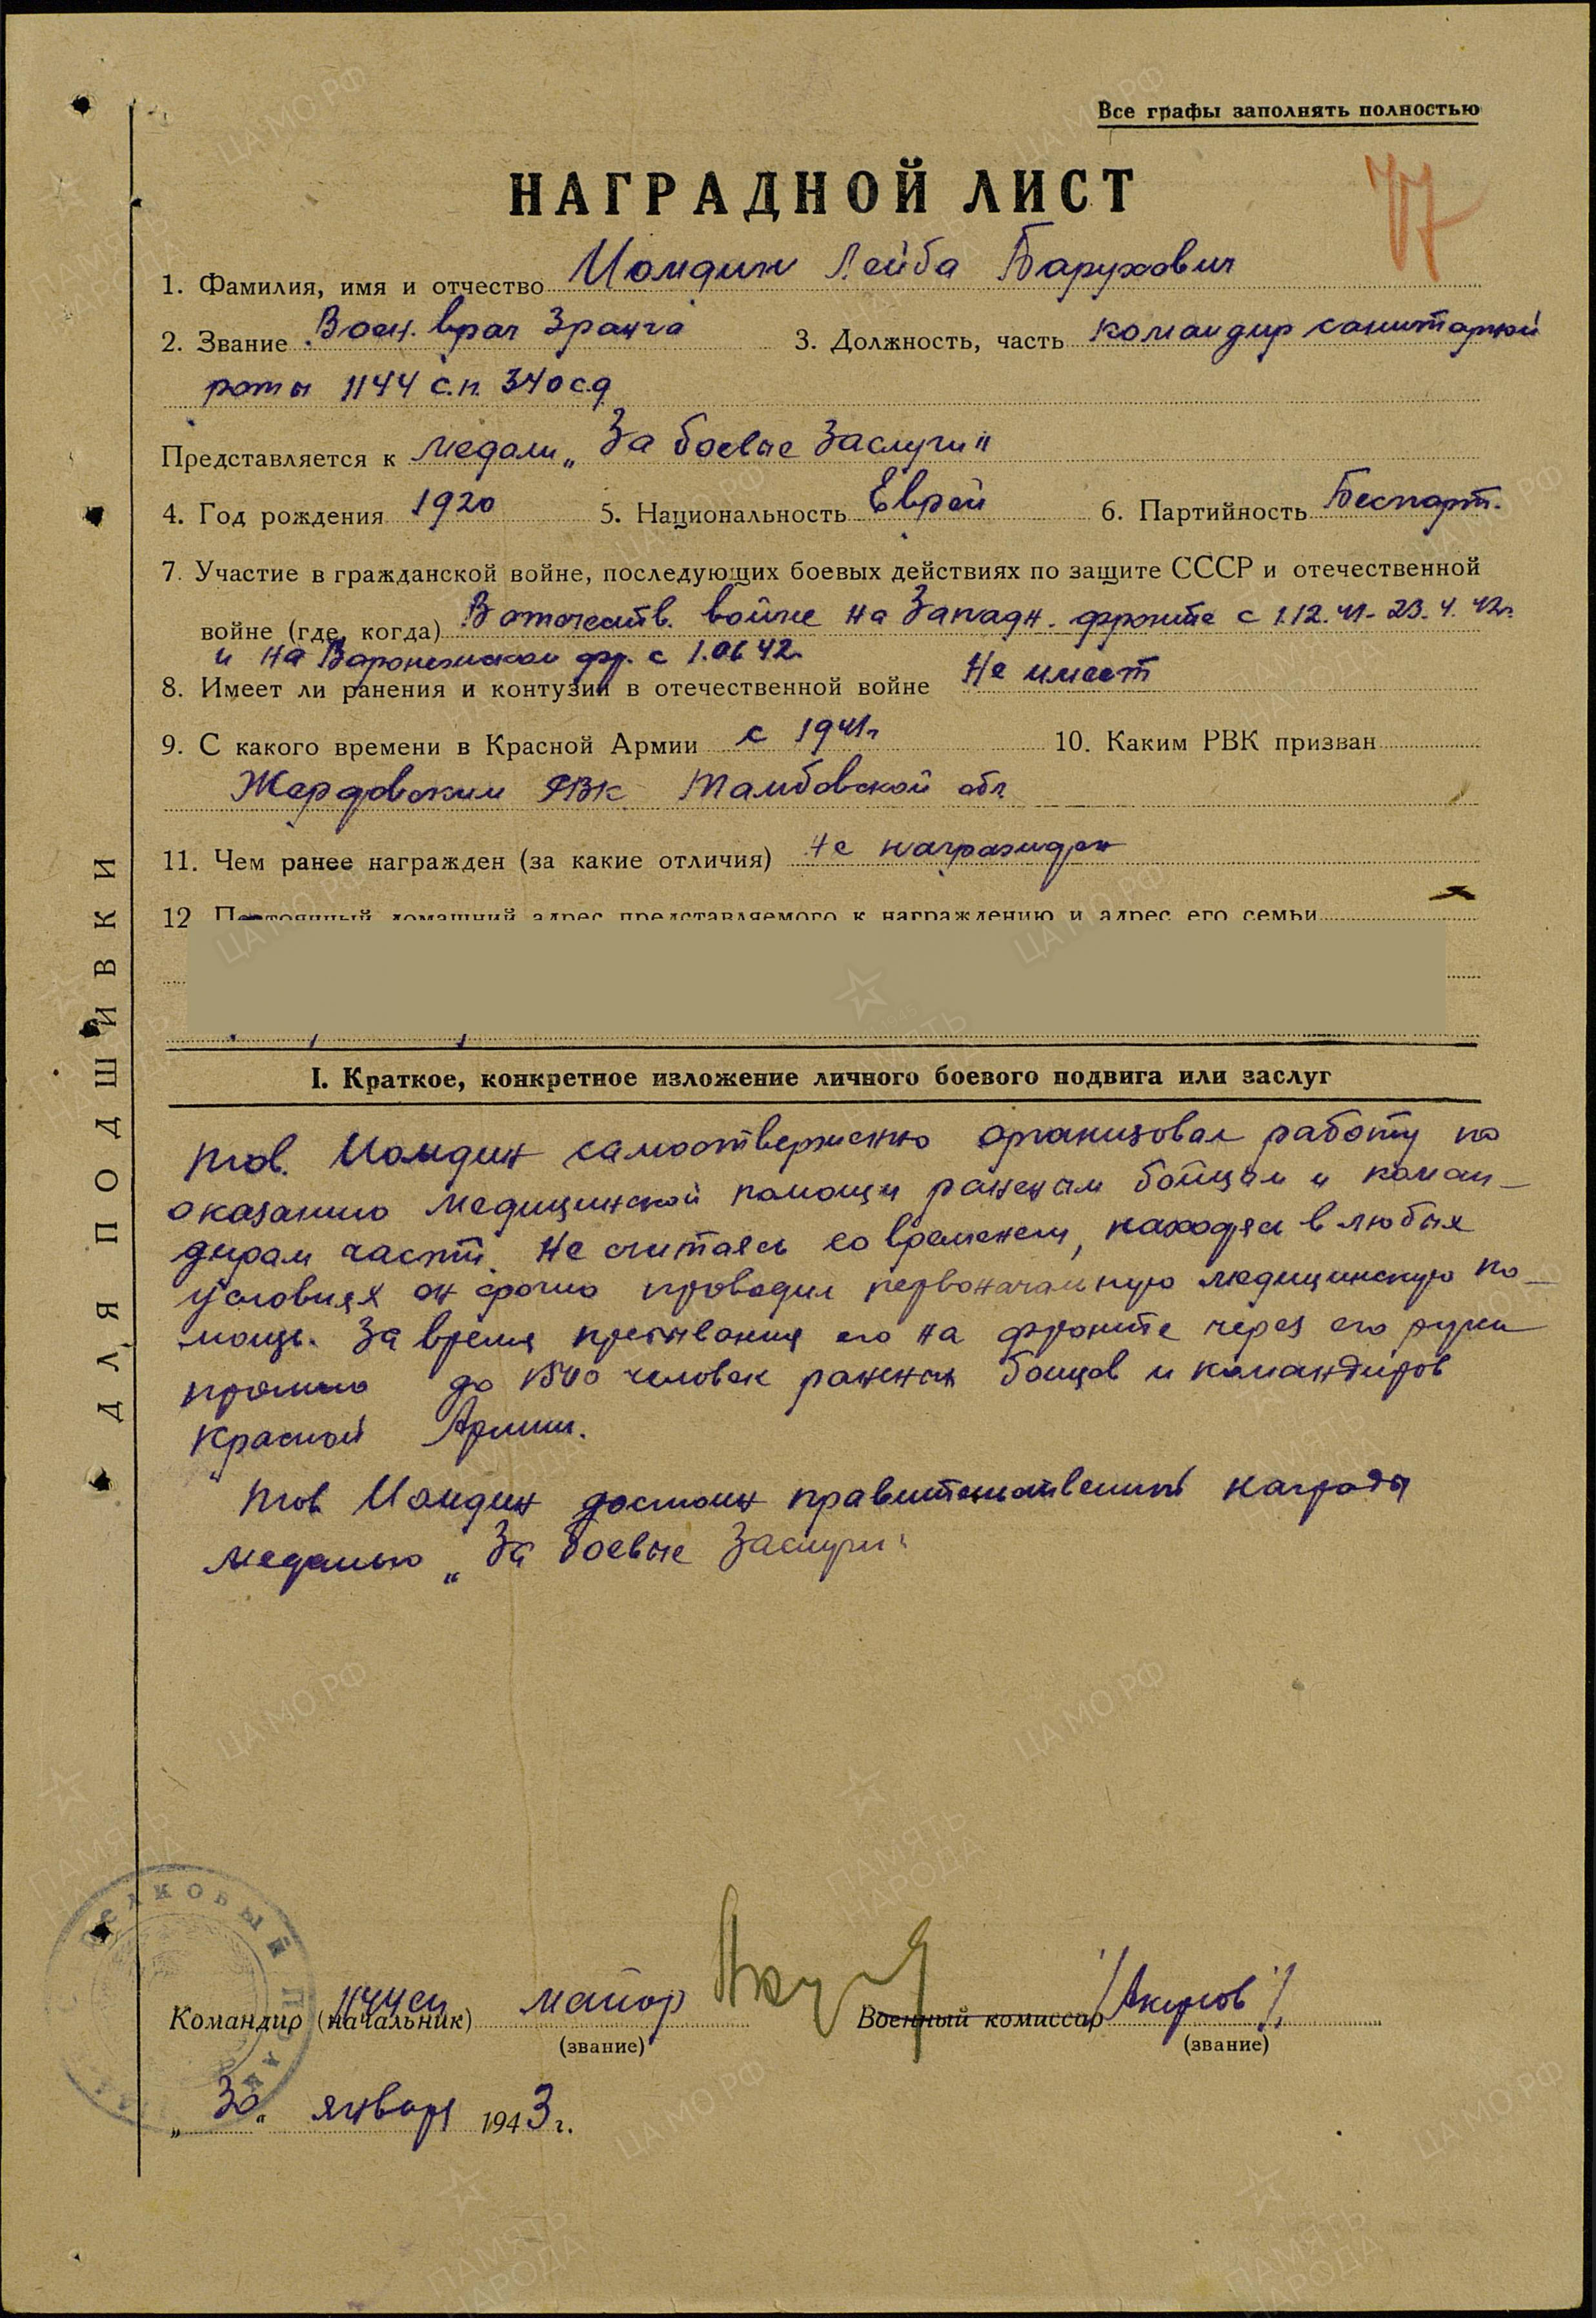 Все графы заполнять полностью
77
НАГРАДНОЙ ЛИСТ
1. Фамилия, имя и отчество Иомдин Лейба Барухович
2. Звание Воен. врач 3 ранга 3. Должность, часть командир санитарной
роты 1144 с.п. 340 с.д
Представляется к медали „За боевые заслуги"
4. Год рождения 1920 5. Национальность Еврей 6. Партийность Беспарт.
7. Участие в гражданской войне, последующих боевых действиях по защите СССР и отечественной
войне (где, когда) В отечеств. войне на Западн. фронте с 1.12.41- 23.4.42г.
и на Воронежском фр. с 1.06 42
8. Имеет ли ранения и контузии в отечественной войне Не имеет
9. С какого времени в Красной Армии с 1941г 10. Каким РВК призван
Жердовским РВК Тамбовской обл
11. Чем ранее награжден (за какие отличия) Не награжден
12 Постоянный домашний адрес представляемого к награждению и адрес его семьи
I. Краткое, конкретное изложение личного боевого подвига или заслуг
тов. Иомдин самоотверженно организовал работу по
оказанию медицинской помощи раненым бойцам и коман-
дирам части. Не считаясь со временем, находясь в любых
условиях он срочно проводил первоначальную медицинскую по-
мощь. За время пребывания его на фронте через его руки
прошло до 1500 человек раненых бойцов и командиров
Красной Армии.
тов Иомдин достоин правительственной награды
медалью „За боевые заслуги"
Командир (начальник) 1144 сп майор Военный комиссар /Акулов/
(звание) (звание)
„30" января 1943 г.
ДЛЯ ПОДШИВКИ
ЦА МО РФ
ПАМЯТЬ НАРОДА